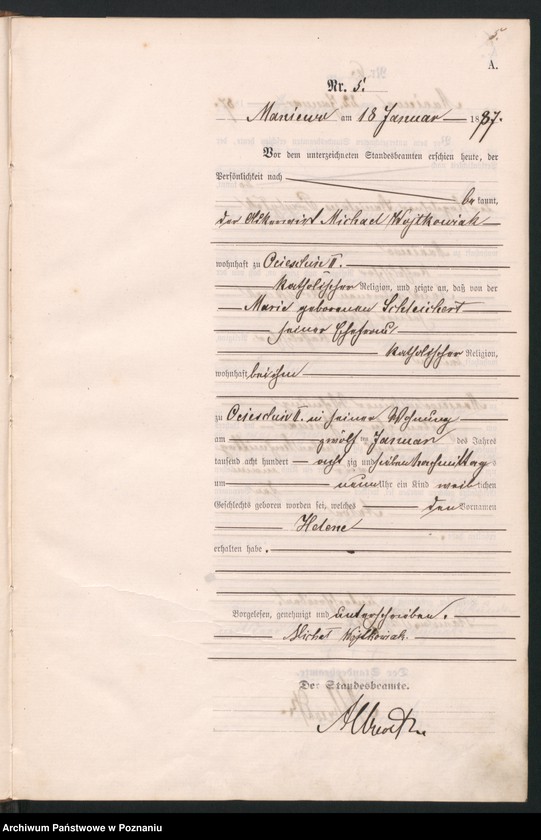 5.
A.
Nr. 5.
Maniewo am 18 Januar 1887.
Vor dem unterzeichneten Standesbeamten erschien heute, der
Persönlichkeit nach
bekannt,
der Ackerwirt Michael Wojtkowiak
wohnhaft zu Ocieschin II.
katholischer Religion, und zeigte an, daß von der
Marie geborenen Schleichert
seiner Ehefrau
katholischer Religion,
wohnhaft bei ihm
zu Ocieschin II. in seiner Wohnung
am zwölf ten Januar des Jahres
tausend acht hundert acht zig und sieben Nachmittag
um neun Uhr ein Kind weiblichen
Geschlechts geboren worden sei, welches den Vornamen
Helene
erhalten habe.
Vorgelesen, genehmigt und unterschrieben.
Michal Wojtkowiak.
Der Standesbeamte.
Archiwum Państwowe w Poznaniu